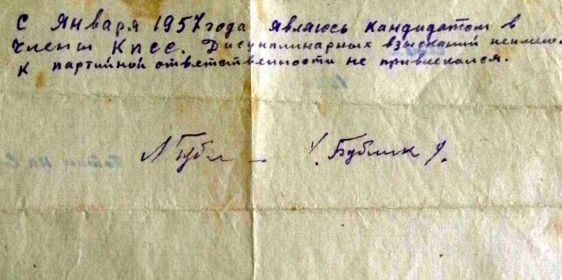 С Января 1957 года являюсь кандидатом в
члены КПСС. Дисциплинарных взысканий неимею.
К партийной ответственности не привлекался.
(Бублик